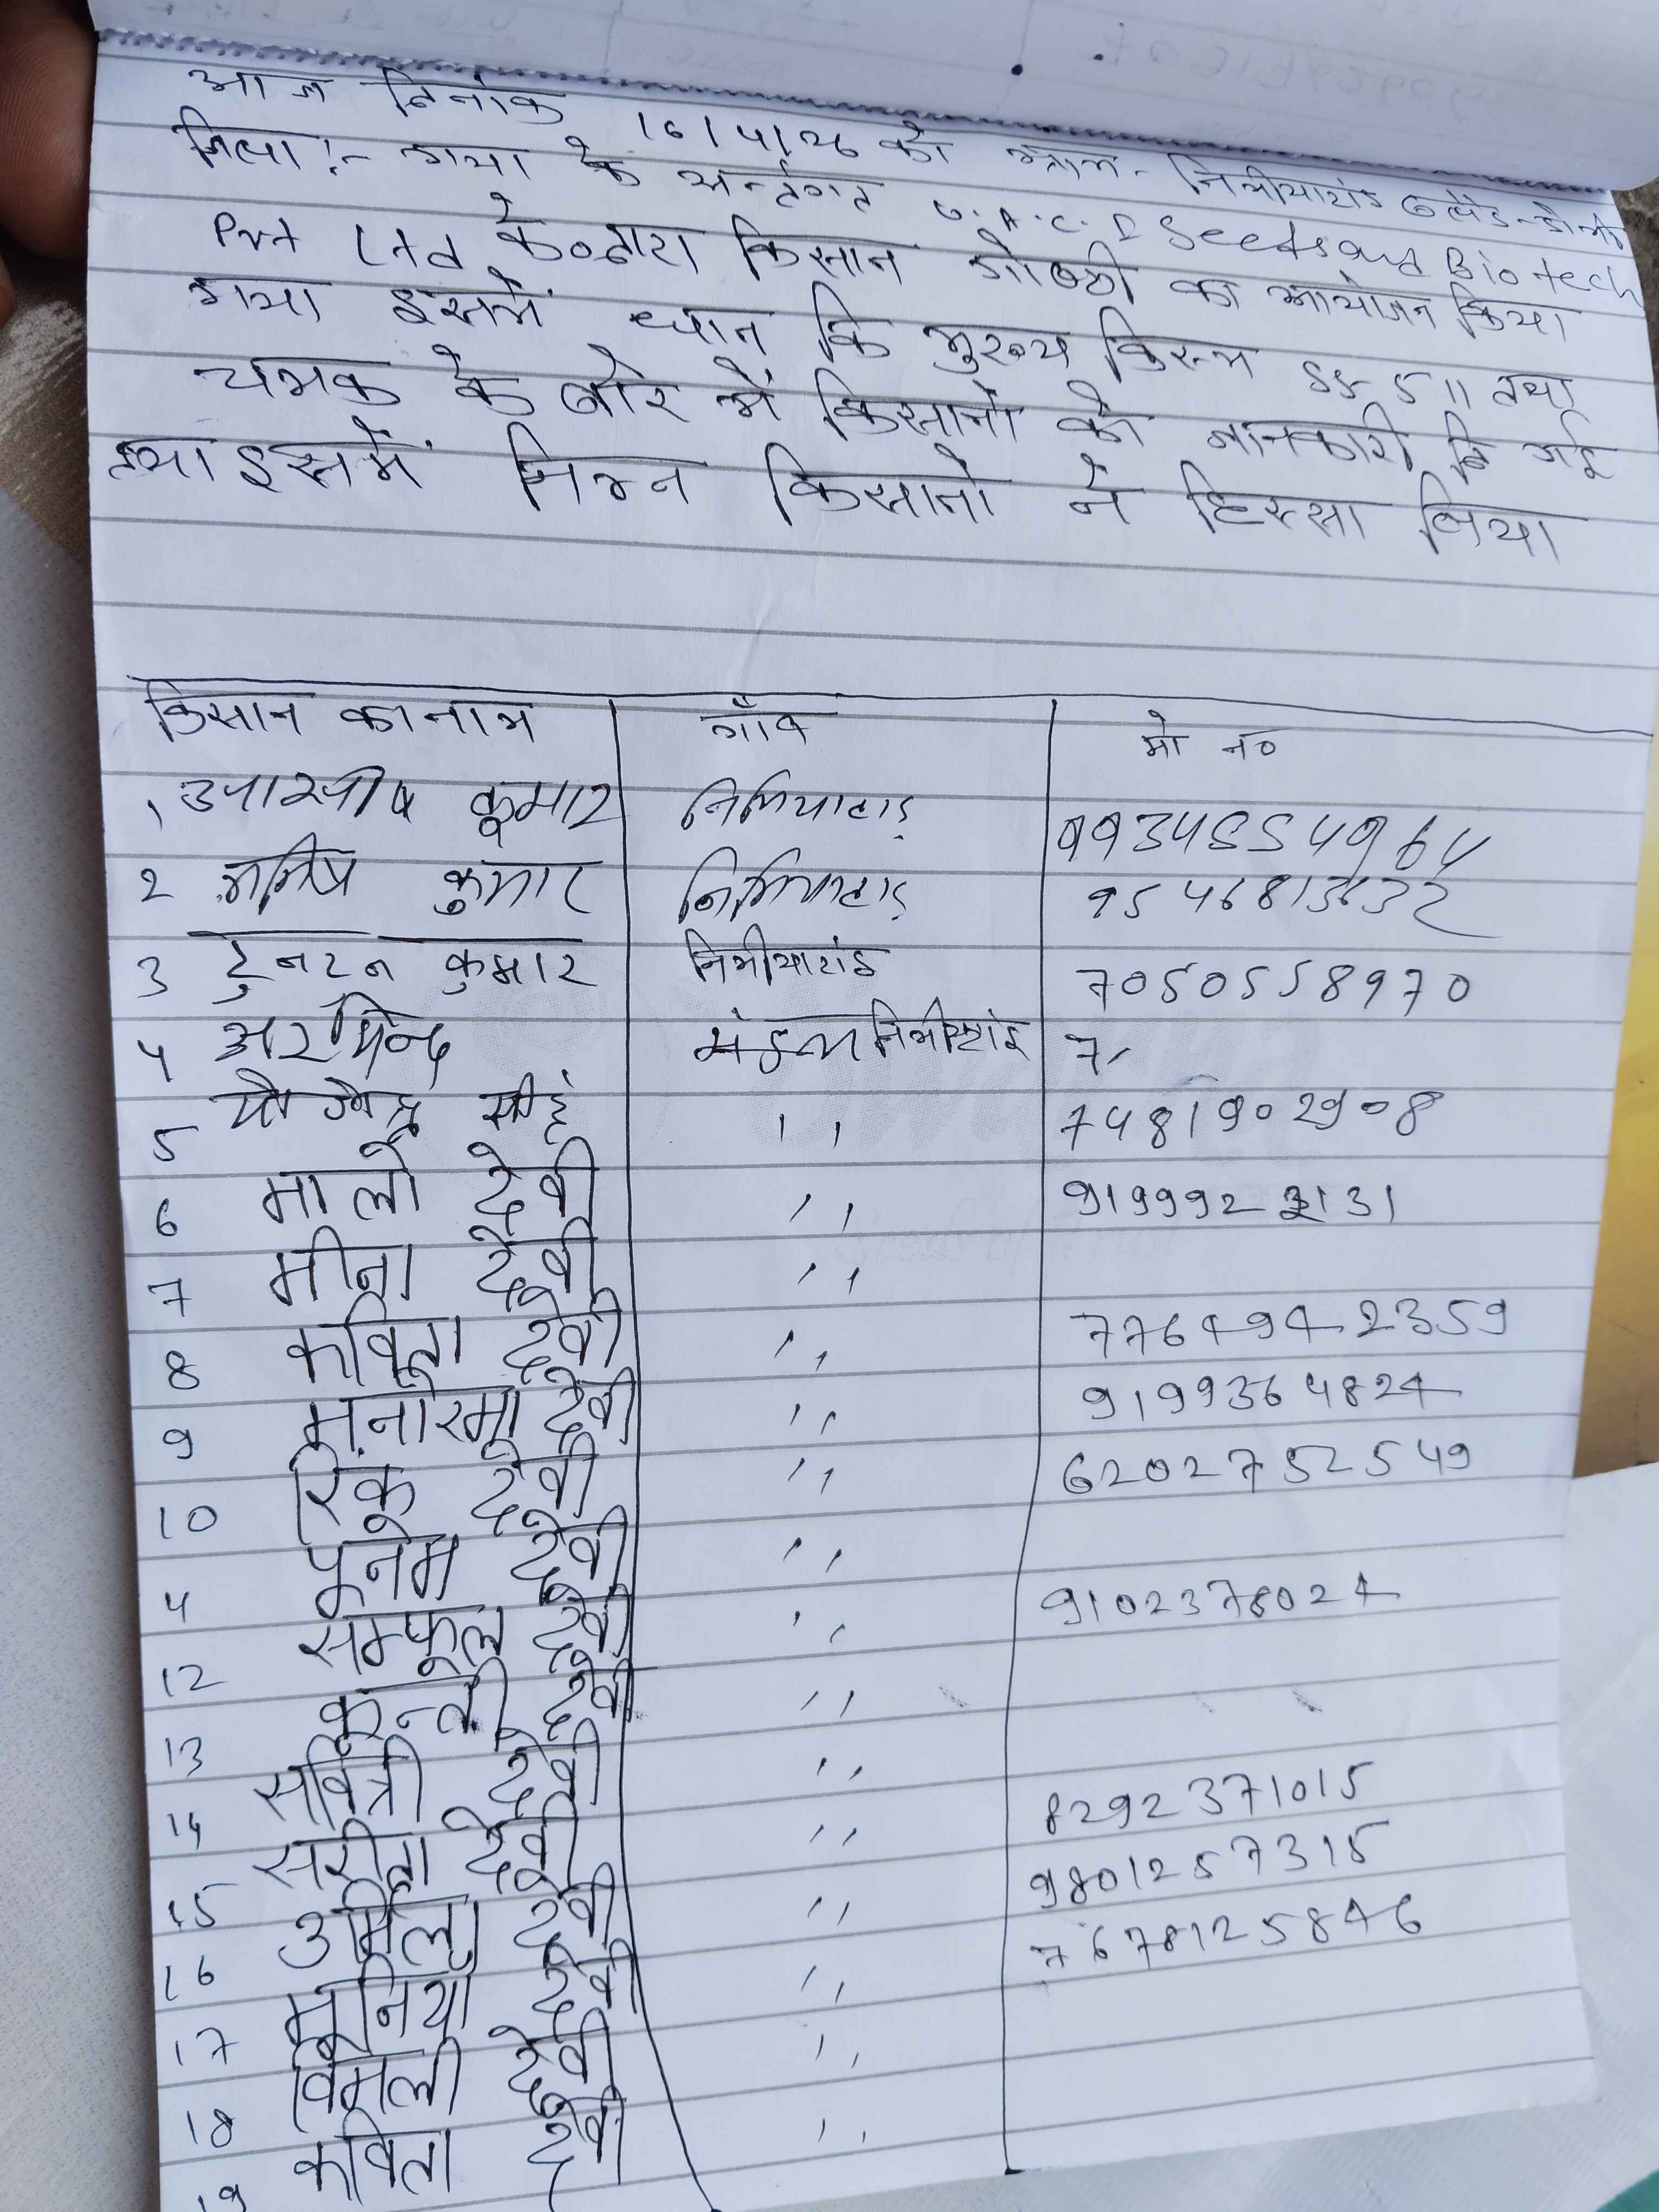 आज दिनांक 16/4/26 को ग्राम- निमीयाटांड
जिला:- गया के अर्न्तगत Seeds and Biotech
Pvt Ltd के द्वारा किसान गोष्ठी का आयोजन किया
गया इसमें धान कि मुख्य किस्म SS-511 तथा
चमक के बारे में किसानो को जानकारी दि गई
तथा इसमें निम्न किसानो ने हिस्सा लिया
किसान का नाम गाँव मो न०
1 कुमार निमियाटाड़
2 मनिष कुमार निमियाटाड़
3 टुनटुन कुमार निमीयाटांड 7050558970
4 अरविन्द निमीयाटांड 7
5 योगेन्द्र सींह ,, 7481902908
6 मालो देवी ,, 919992 3131
7 मीना देवी ,,
8 कविता देवी ,, 7764942359
9 मनोरमा देवी ,, 9199364824
10 रिंकू देवी ,, 6202752549
11 पूनम देवी ,,
12 सम्फूल देवी ,, 9102378024
13 कुन्ती देवी ,,
14 सवित्री देवी ,, 8292371015
15 सरीता देवी ,, 9801257315
16 उर्मिला देवी ,, 7678125846
17 मुनिया देवी ,,
18 विमली देवी ,,
19 कविता देवी ,,